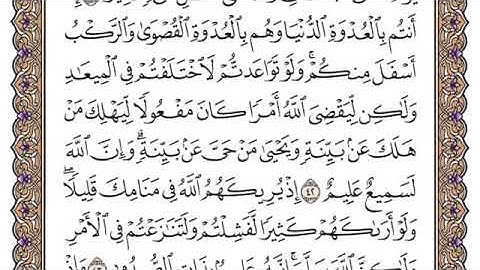 أَنتُم بِٱلْعُدْوَةِ ٱلدُّنْيَا وَهُم بِٱلْعُدْوَةِ ٱلْقُصْوَىٰ وَٱلرَّكْبُ
أَسْفَلَ مِنكُمْ ۚ وَلَوْ تَوَاعَدتُّمْ لَٱخْتَلَفْتُمْ فِى ٱلْمِيعَـٰدِ
وَلَـٰكِن لِّيَقْضِىَ ٱللَّهُ أَمْرًا كَانَ مَفْعُولًا لِّيَهْلِكَ مَنْ
هَلَكَ عَنۢ بَيِّنَةٍ وَيَحْيَىٰ مَنْ حَىَّ عَنۢ بَيِّنَةٍ ۗ وَإِنَّ ٱللَّهَ
لَسَمِيعٌ عَلِيمٌ ٤٢ إِذْ يُرِيكَهُمُ ٱللَّهُ فِى مَنَامِكَ قَلِيلًا ۖ
وَلَوْ أَرَىٰكَهُمْ كَثِيرًا لَّفَشِلْتُمْ وَلَتَنَـٰزَعْتُمْ فِى ٱلْأَمْرِ